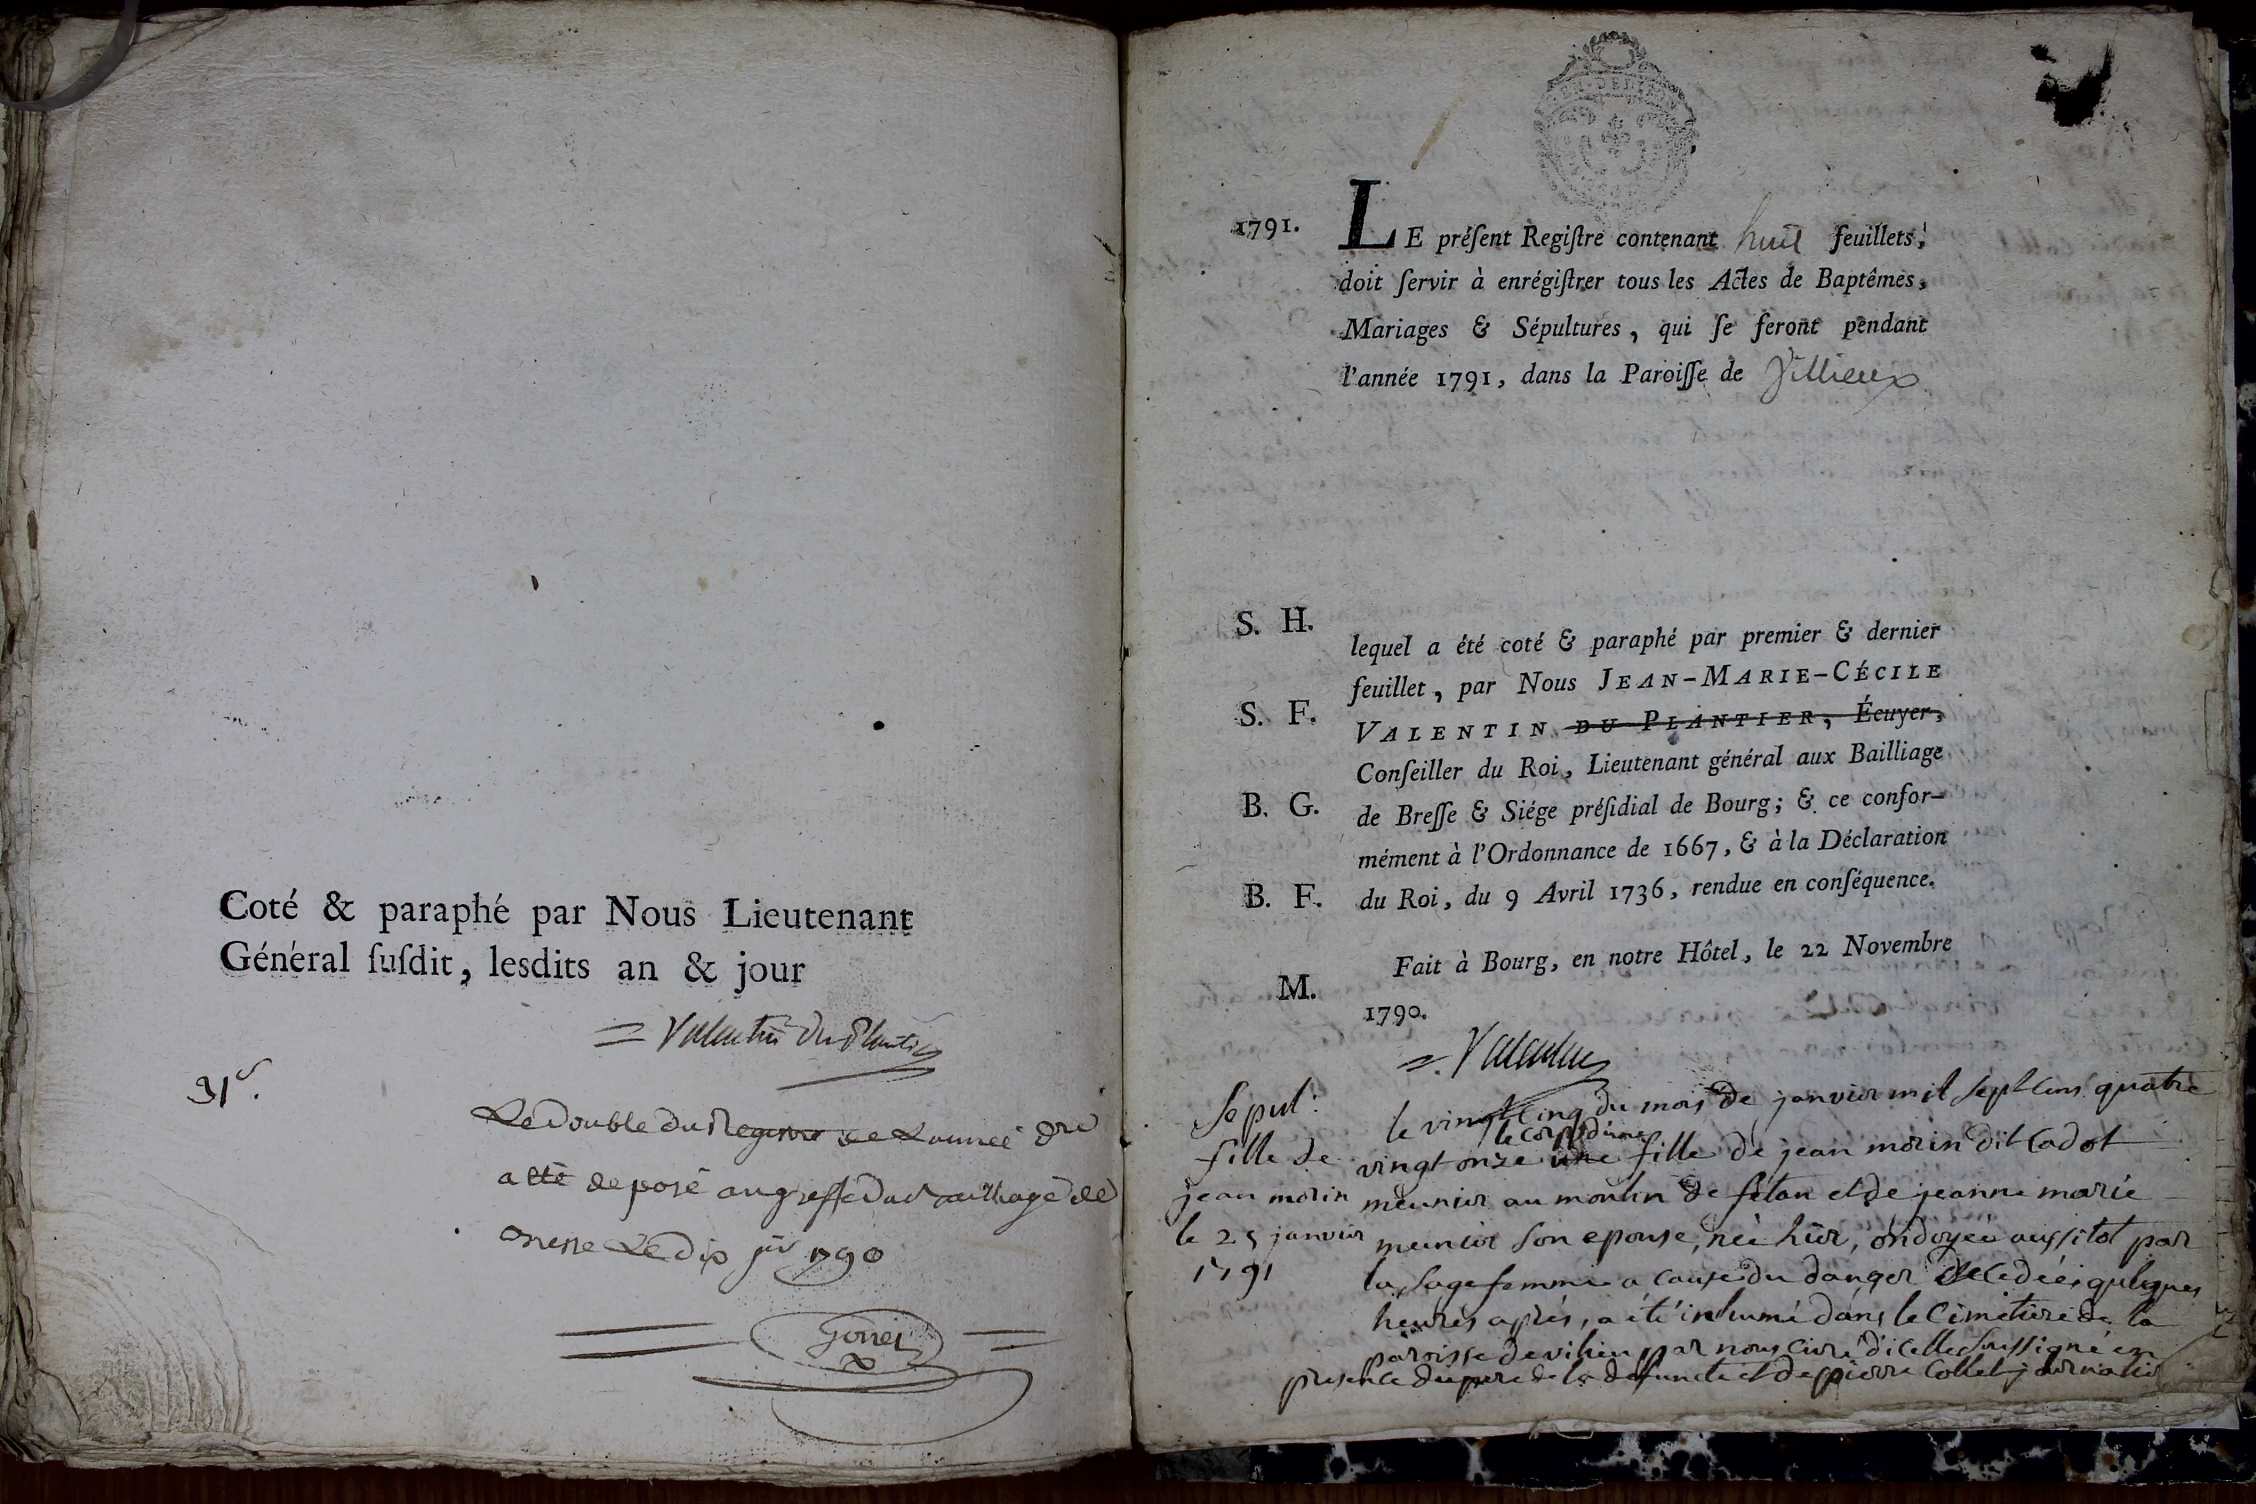 Coté & paraphé par Nous Lieutenant
Général ſuſdit, lesdits an & jour
= Valentin du Plantier
Le double du Registre de L'année dre
a été deposé au greffe du Bailliage de
Bresse Le dix jer 1790
1791.
LE préſent Regiſtre contenant huit feuillets,
doit ſervir à enrégiſtrer tous les Actes de Baptêmes,
Mariages & Sépultures, qui ſe feront pendant
l'année 1791, dans la Paroiſſe de Villieux
S. H.
lequel a été coté & paraphé par premier & dernier
feuillet, par Nous JEAN-MARIE-CÉCILE
S. F.
VALENTIN DU PLANTIER, Écuyer,
Conſeiller du Roi, Lieutenant général aux Bailliage
B. G.
de Breſſe & Siége préſidial de Bourg; & ce confor-
mément à l'Ordonnance de 1667, & à la Déclaration
B. F.
du Roi, du 9 Avril 1736, rendue en conſéquence.
Fait à Bourg, en notre Hôtel, le 22 Novembre
M.
1790.
=. Valentin
Sepul:
fille de
jean morin
le 25 janvier
1791
le vingt cinq du mois de janvier mil sept cens quatre
le corps d'une
vingt onze une fille de jean morin dit Cadot
meunier au moulin de fetan et de jeanne marie
meunier son epouse, née hier, ondoyée aussitot par
la sage femme a cause du danger decedée quelques
heures après, a été inhumé dans le Cimetiere de la
paroisse de vilieu par nous curé d'icelle soussigné en
presence du pere de la defuncte et de pierre Collet journalier